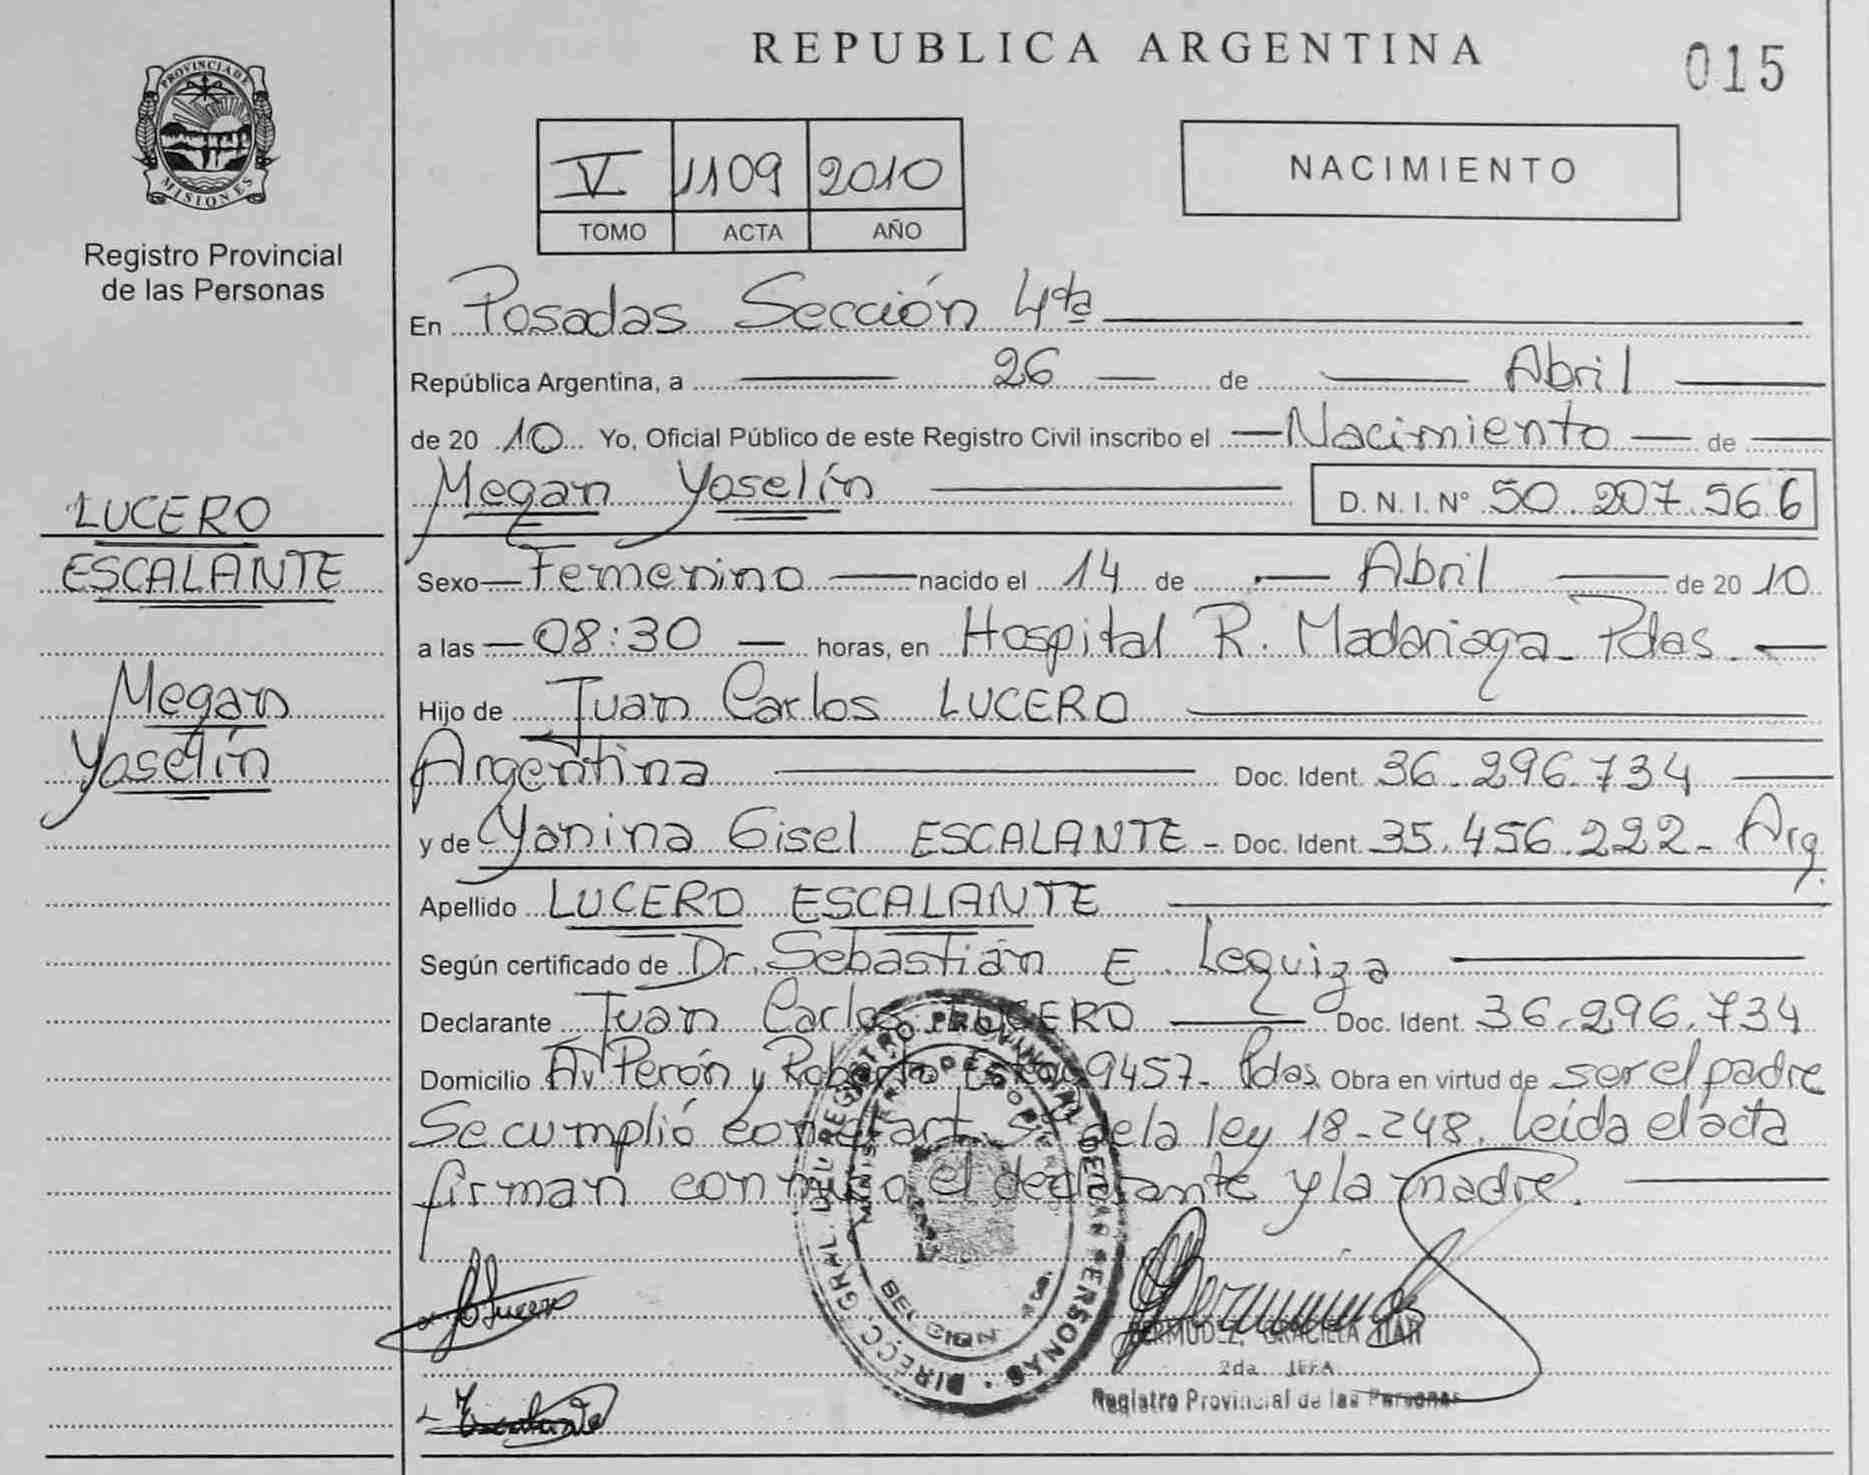 REPUBLICA ARGENTINA
015
PROVINCIA DE
MISIONES
Registro Provincial
de las Personas
V 1109 2010
TOMO ACTA AÑO
NACIMIENTO
En Posadas Sección 4ta
República Argentina, a 26 de Abril
de 20 10 Yo, Oficial Público de este Registro Civil inscribo el Nacimiento de
Megan Yoselín D.N.I. Nº 50.207.566
LUCERO
ESCALANTE
Megan
Yoselín
Sexo Femenino nacido el 14 de Abril de 20 10
a las 08:30 horas, en Hospital R. Madariaga - Pdas.
Hijo de Juan Carlos LUCERO
Argentina Doc. Ident. 36.296.734
y de Yanina Gisel ESCALANTE - Doc. Ident. 35.456.222 - Arg.
Apellido LUCERO ESCALANTE
Según certificado de Dr. Sebastián E. Leguiza
Declarante Juan Carlos LUCERO Doc. Ident. 36.296.734
Domicilio Av Perón y Roberto 9457 - Pdas Obra en virtud de ser el padre
Se cumplió con el art. de la ley 18-248. Leída el acta
firman conmigo el declarante y la madre.
DIRECC. GRAL. DEL REGISTRO PROVINCIAL DE LAS PERSONAS
Lucero
Escalante
BERMUDEZ, GRACIELA
2da JEFA
Registro Provincial de las Personas